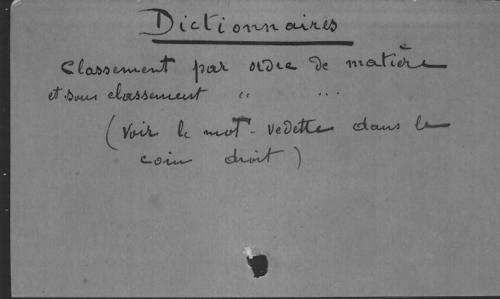 Dictionnaires
Classement par ordre de matière
et sous classement " ...
(Voir le mot-vedette dans le
coin droit)